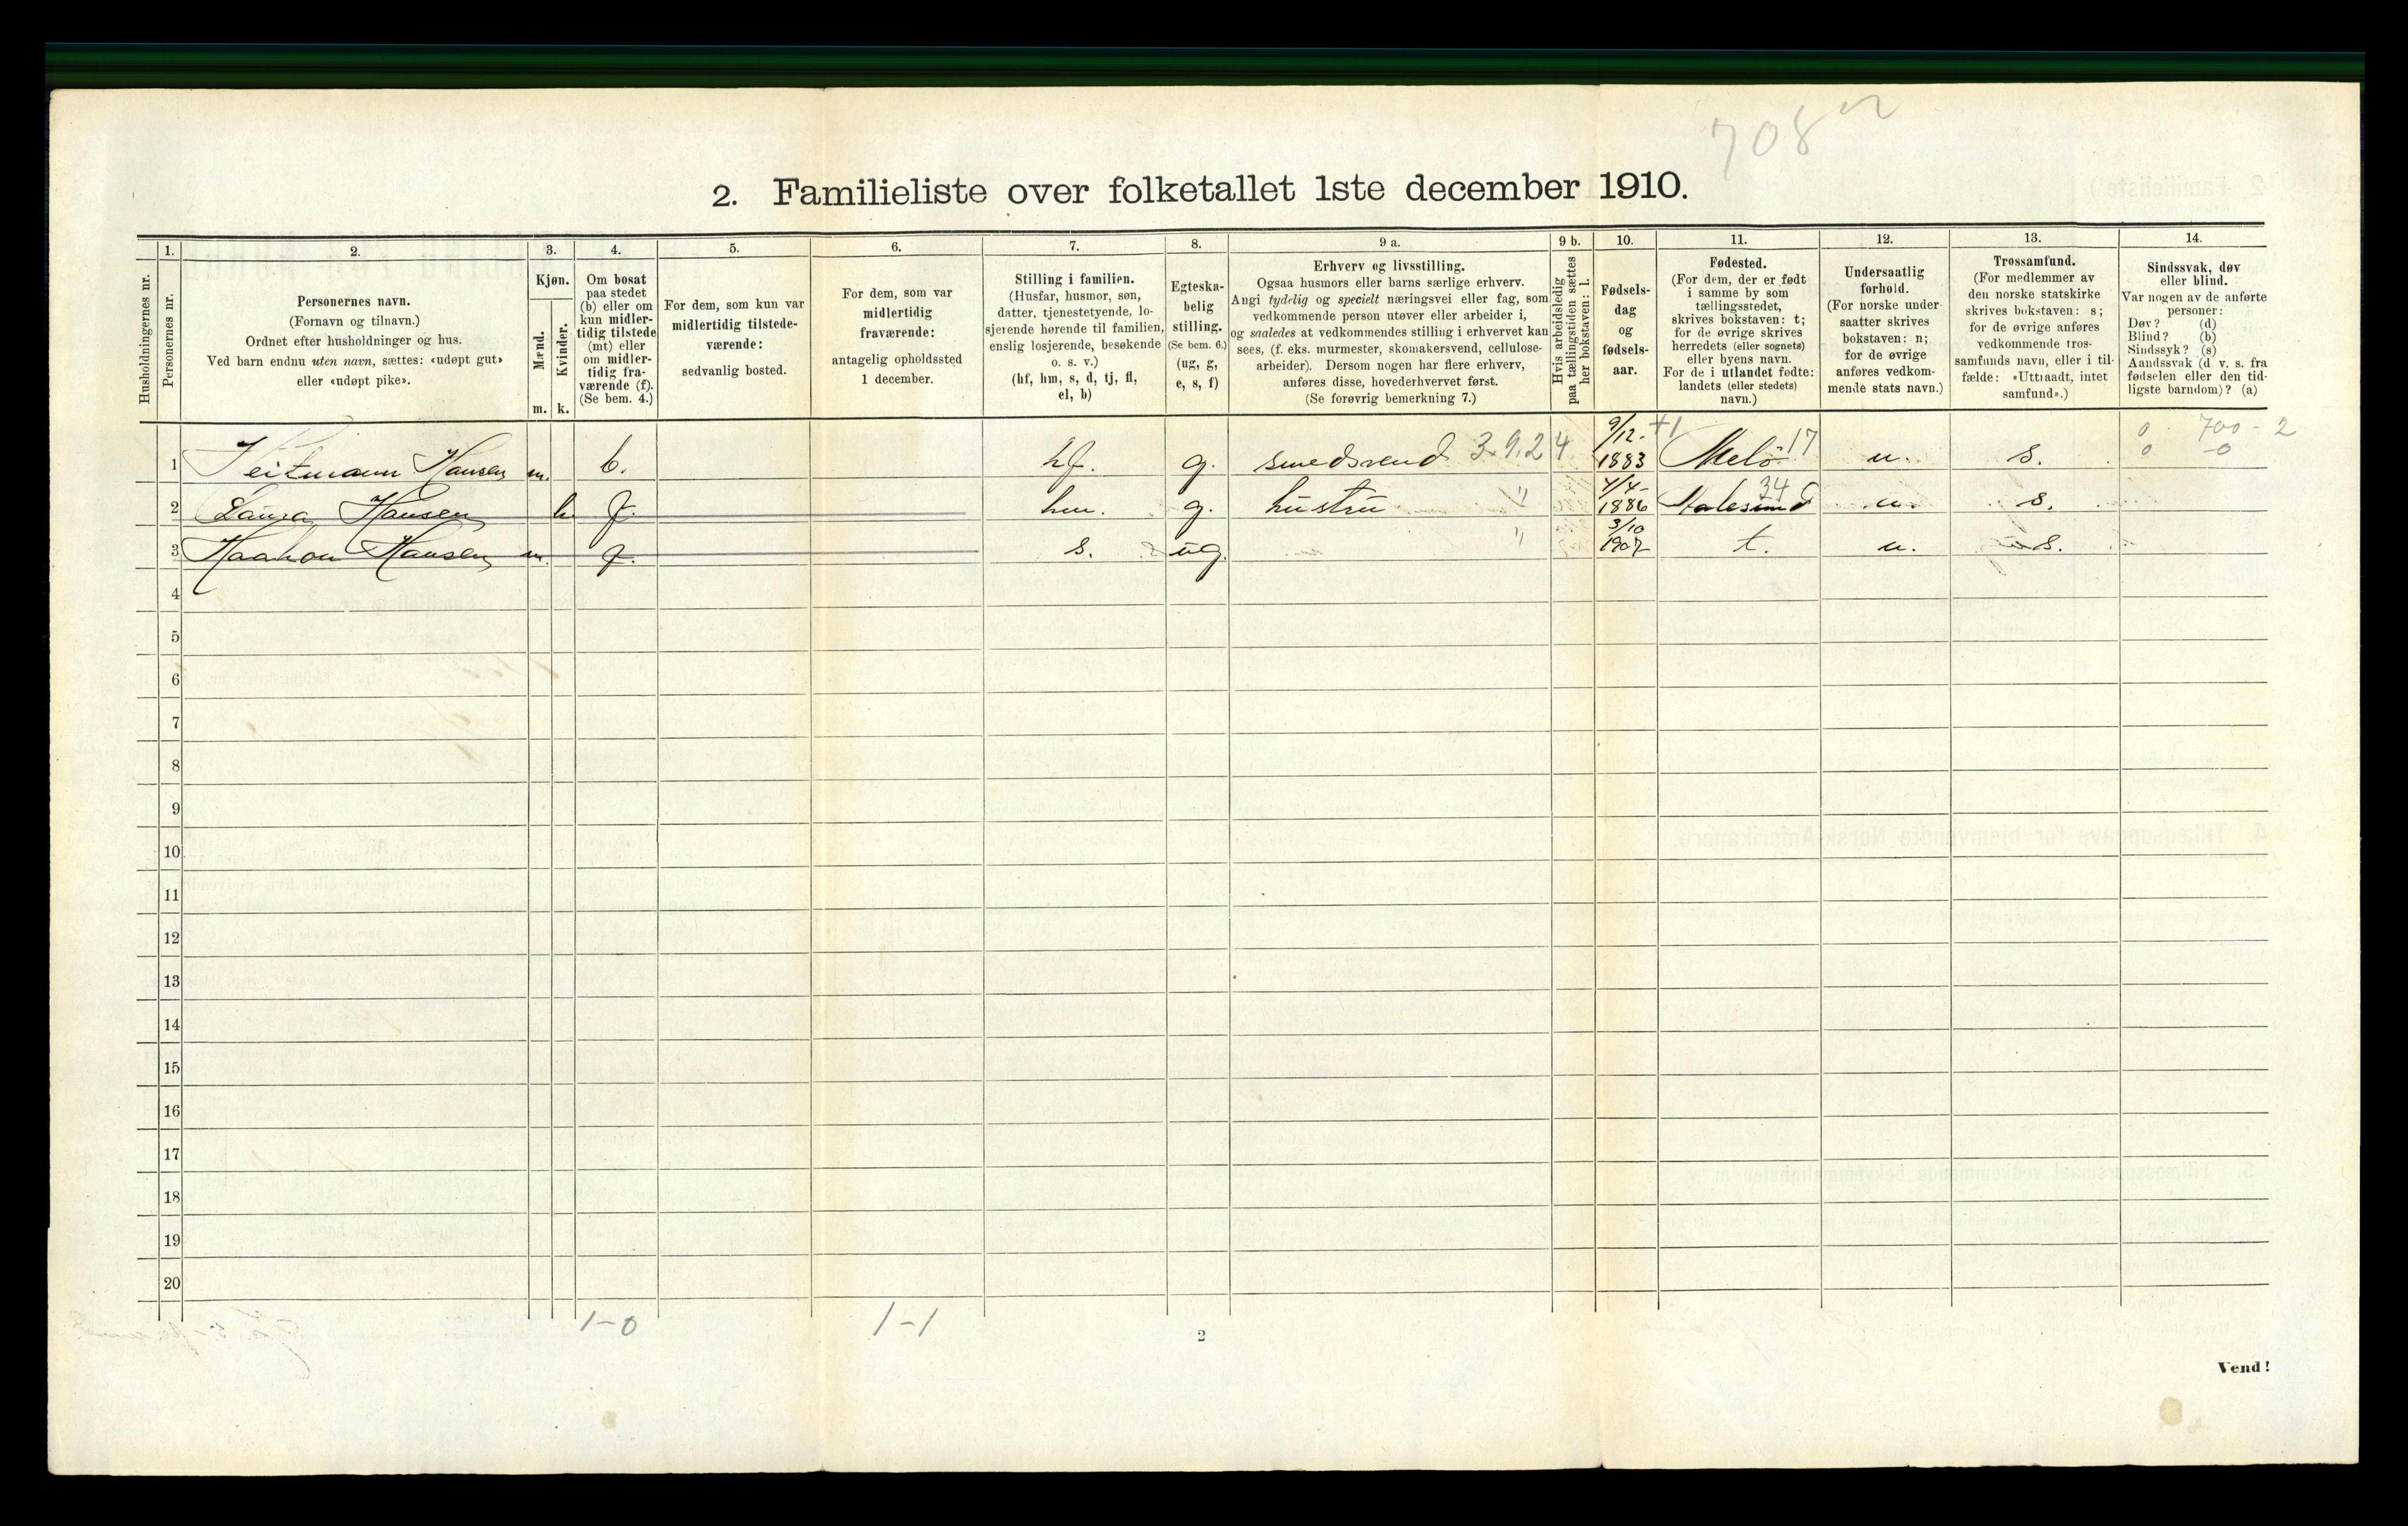 708
2. Familieliste over folketallet 1ste december 1910.
Husholdningernes nr.
1.
Personernes nr.
2.
Personernes navn.
(Fornavn og tilnavn.)
Ordnet efter husholdninger og hus.
Ved barn endnu uten navn, sættes: «udøpt gut»
eller «udøpt pike».
3.
Kjøn.
Mænd.
Kvinder.
m. k.
4.
Om bosat
paa stedet
(b) eller om
kun midler-
tidig tilstede
(mt) eller
om midler-
tidig fra-
værende (f).
(Se bem. 4.)
5.
For dem, som kun var
midlertidig tilstede-
værende:
sedvanlig bosted.
6.
For dem, som var
midlertidig
fraværende:
antagelig opholdssted
1 december.
7.
Stilling i familien.
(Husfar, husmor, søn,
datter, tjenestetyende, lo-
sjerende hørende til familien,
enslig losjerende, besøkende
o. s. v.)
(hf, hm, s, d, tj, fl,
el, b)
8.
Egteska-
belig
stilling.
(Se bem. 6.)
(ug, g,
e, s, f)
9 a.
Erhverv og livsstilling.
Ogsaa husmors eller barns særlige erhverv.
Angi tydelig og specielt næringsvei eller fag, som
vedkommende person utøver eller arbeider i,
og saaledes at vedkommendes stilling i erhvervet kan
sees, (f. eks. murmester, skomakersvend, cellulose-
arbeider). Dersom nogen har flere erhverv,
anføres disse, hovederhvervet først.
(Se forøvrig bemerkning 7.)
9 b.
Hvis arbeidsledig
paa tællingstiden sættes
her bokstaven: l.
10.
Fødsels-
dag
og
fødsels-
aar.
11.
Fødested.
(For dem, der er født
i samme by som
tællingsstedet,
skrives bokstaven: t;
for de øvrige skrives
herredets (eller sognets)
eller byens navn.
For de i utlandet fødte:
landets (eller stedets)
navn.)
12.
Undersaatlig
forhold.
(For norske under-
saatter skrives
bokstaven: n;
for de øvrige
anføres vedkom-
mende stats navn.)
13.
Trossamfund.
(For medlemmer av
den norske statskirke
skrives bokstaven: s;
for de øvrige anføres
vedkommende tros-
samfunds navn, eller i til-
fælde: «Uttraadt, intet
samfund».)
14.
Sindssvak, døv
eller blind.
Var nogen av de anførte
personer:
Døv? (d)
Blind? (b)
Sindssyk? (s)
Aandssvak (d. v. s. fra
fødselen eller den tid-
ligste barndom)? (a)
1 Heitmann Hansen m. b. hf. g. smedsvend 3.9.24 9/12- 1883 Melø 17 n. s. 0 700-2
0 -0
2 Laura Hansen k f. hm. g. hustru " 4/4- 1886 Aalesund 34 n. s.
3 Haakon Hansen m. f. s. ug. " 3/10 1907 t. n. s.
4
5
6
7
8
9
10
11
12
13
14
15
16
17
18
19
20
1-0 1-1
2
Vend!